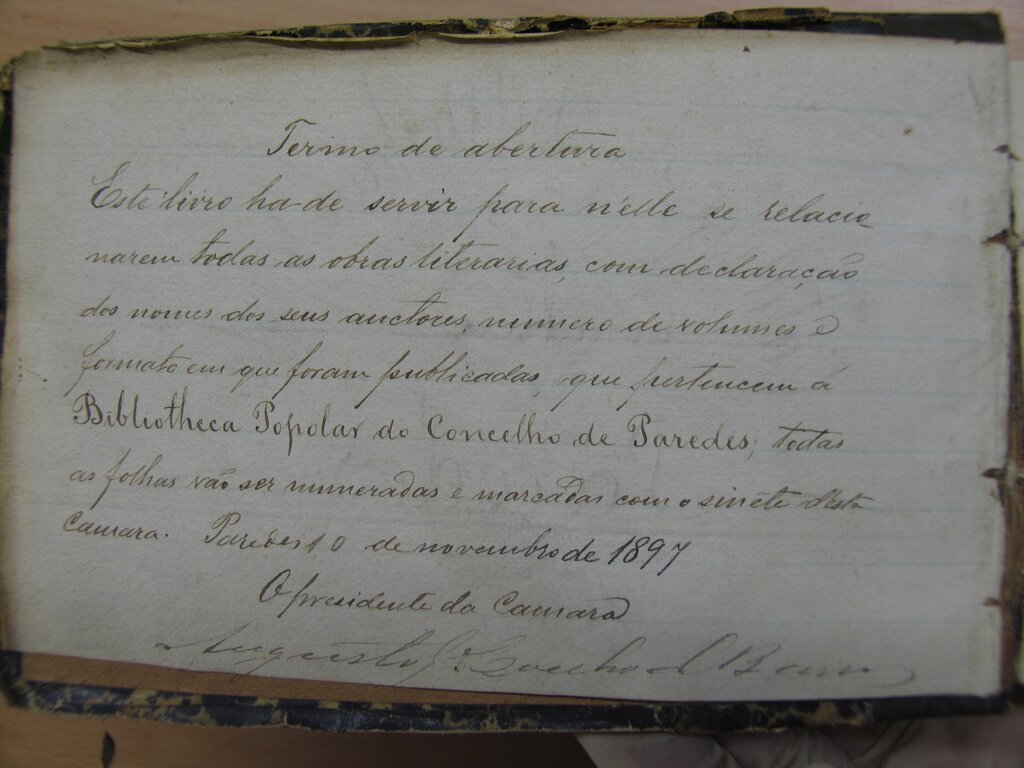 Termo de abertura
Este livro ha-de servir para n'elle se relacio-
narem todas as obras literarias, com declaração
dos nomes dos seus auctores, numero de volumes e
formato em que foram publicadas, que pertencem á
Bibliotheca Popolar do Concelho de Paredes; todas
as folhas vão ser numeradas e marcadas com o sinête desta
Camara. Paredes 10 de novembro de 1897
O presidente da Camara
Augusto